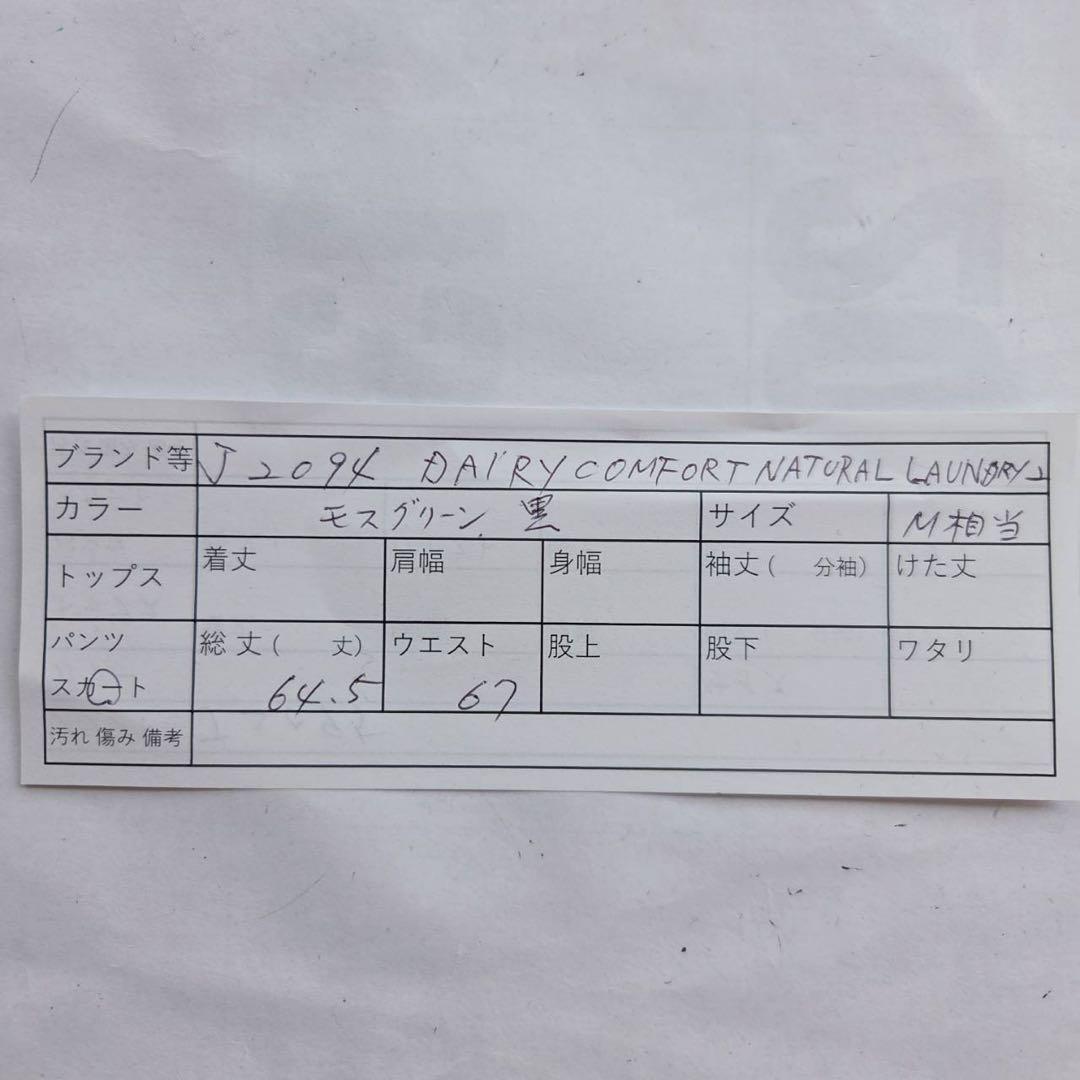 ブランド等 J2094 DAIRY COMFORT NATURAL LAUNDRY 2
カラー モスグリーン、黒 サイズ M相当
トップス 着丈 肩幅 身幅 袖丈( 分袖) けた丈
パンツ 総丈( 丈) ウエスト 股上 股下 ワタリ
スカート 64.5 67
汚れ 傷み 備考